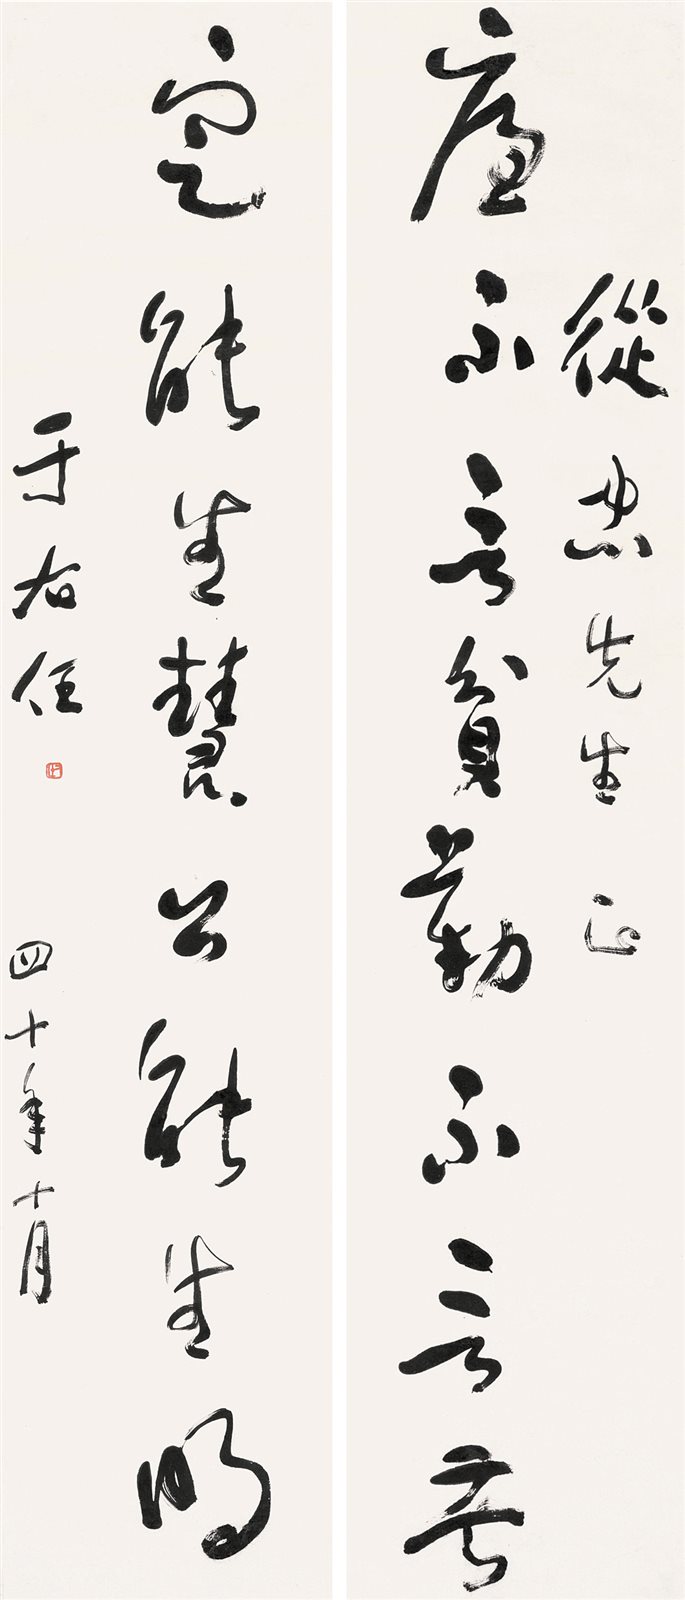 從忠先生正
廉不言貧勤不言苦
定能生慧公能生明
于右任
四十年十月